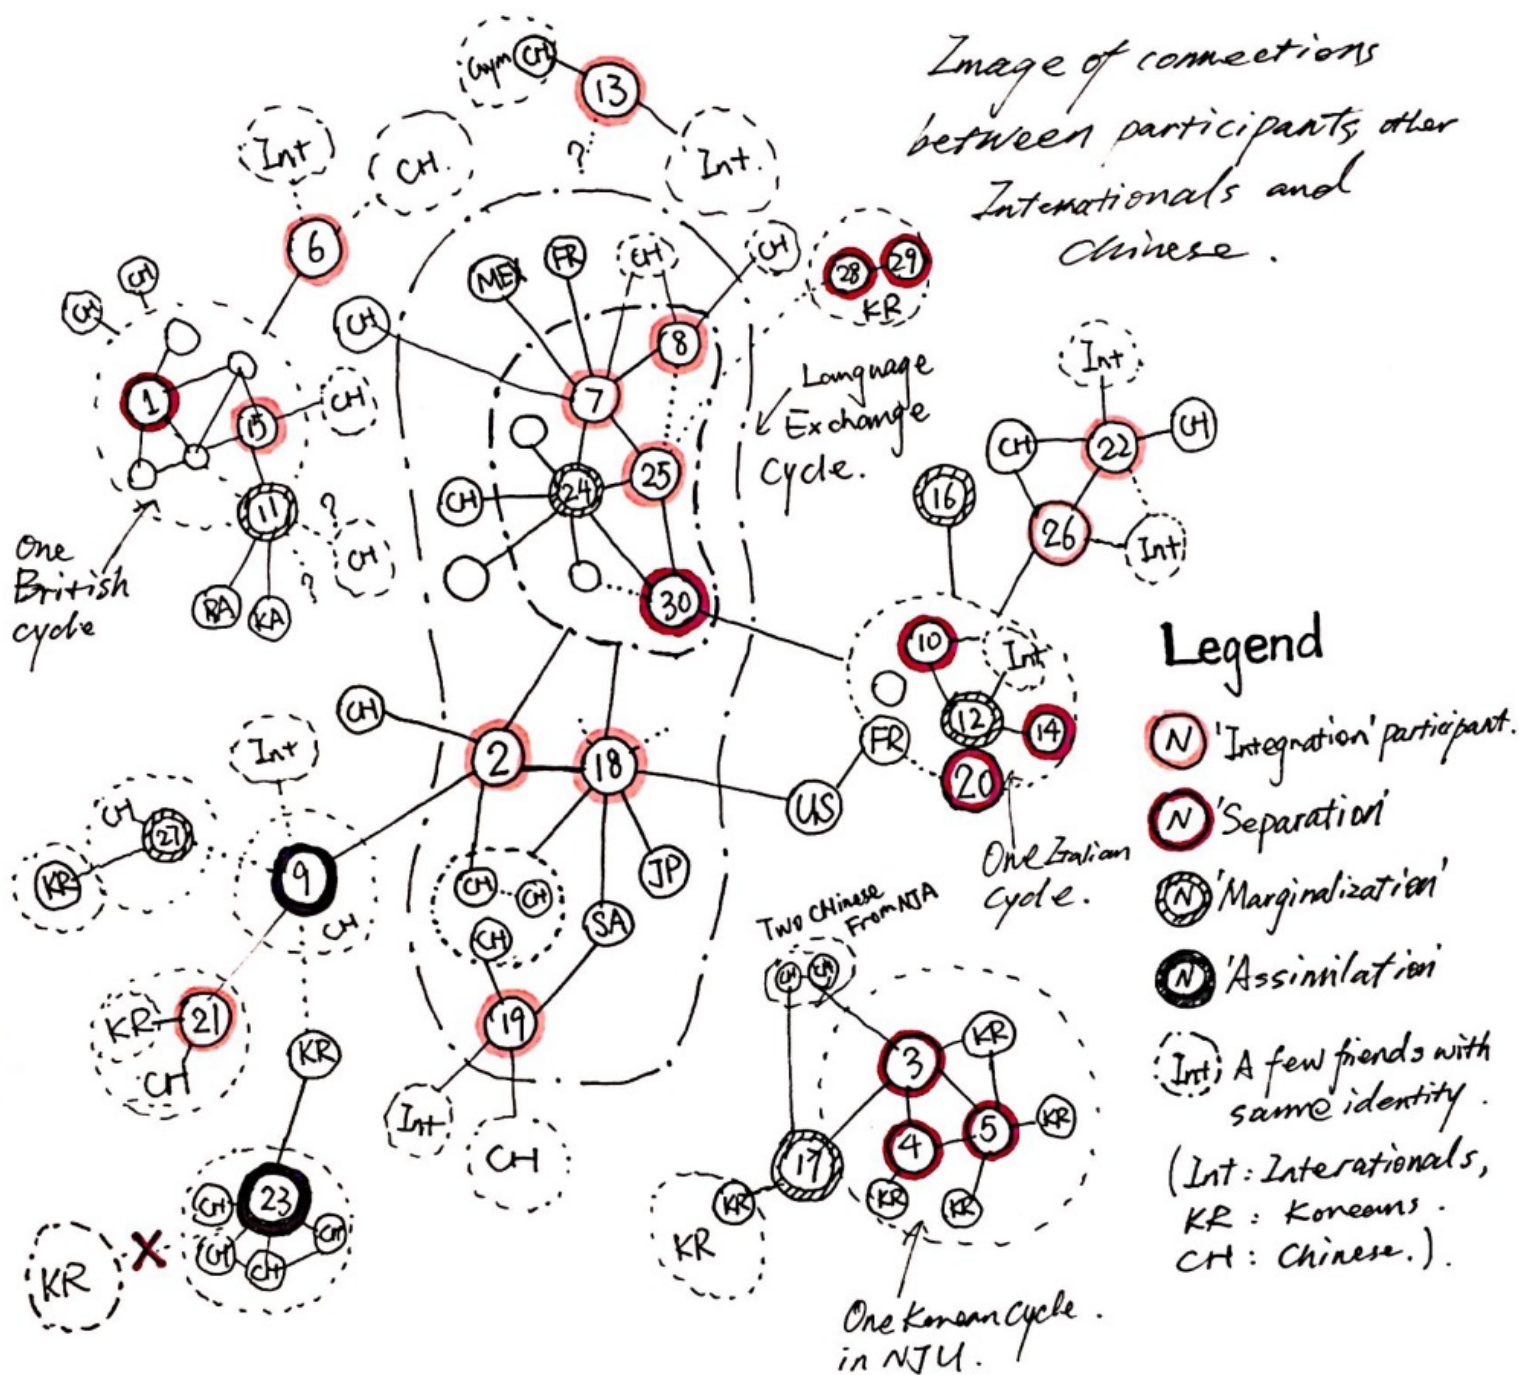 Image of connections
between participants, other
Internationals and
Chinese.
Gym
CH
13
?
Int.
Int
CH.
6
CH
CH
CH
1
15
CH
11
?
CH
?
RA
KA
One
British
cycle
MEX
FR
CH
CH
8
7
25
24
CH
30
28
29
KR
Language
Exchange
Cycle.
Int
CH
22
CH
26
Int
16
10
Int
12
14
20
FR
US
One Italian
cycle.
CH
2
18
Int
CH
27
KR
9
CH
CH
CH
JP
SA
CH
19
Int
CH
KR
21
CH
KR
23
CH
CH
CH
CH
KR
X
Two Chinese
From NJA
CH
CH
3
KR
4
5
KR
KR
KR
17
KR
KR
One Korean cycle.
in NJU.
Legend
N 'Integration' participant.
N 'Separation'
N 'Marginalization'
N 'Assimilation'
Int A few friends with
same identity.
(Int: Interationals,
KR: Koreans.
CH: Chinese.).